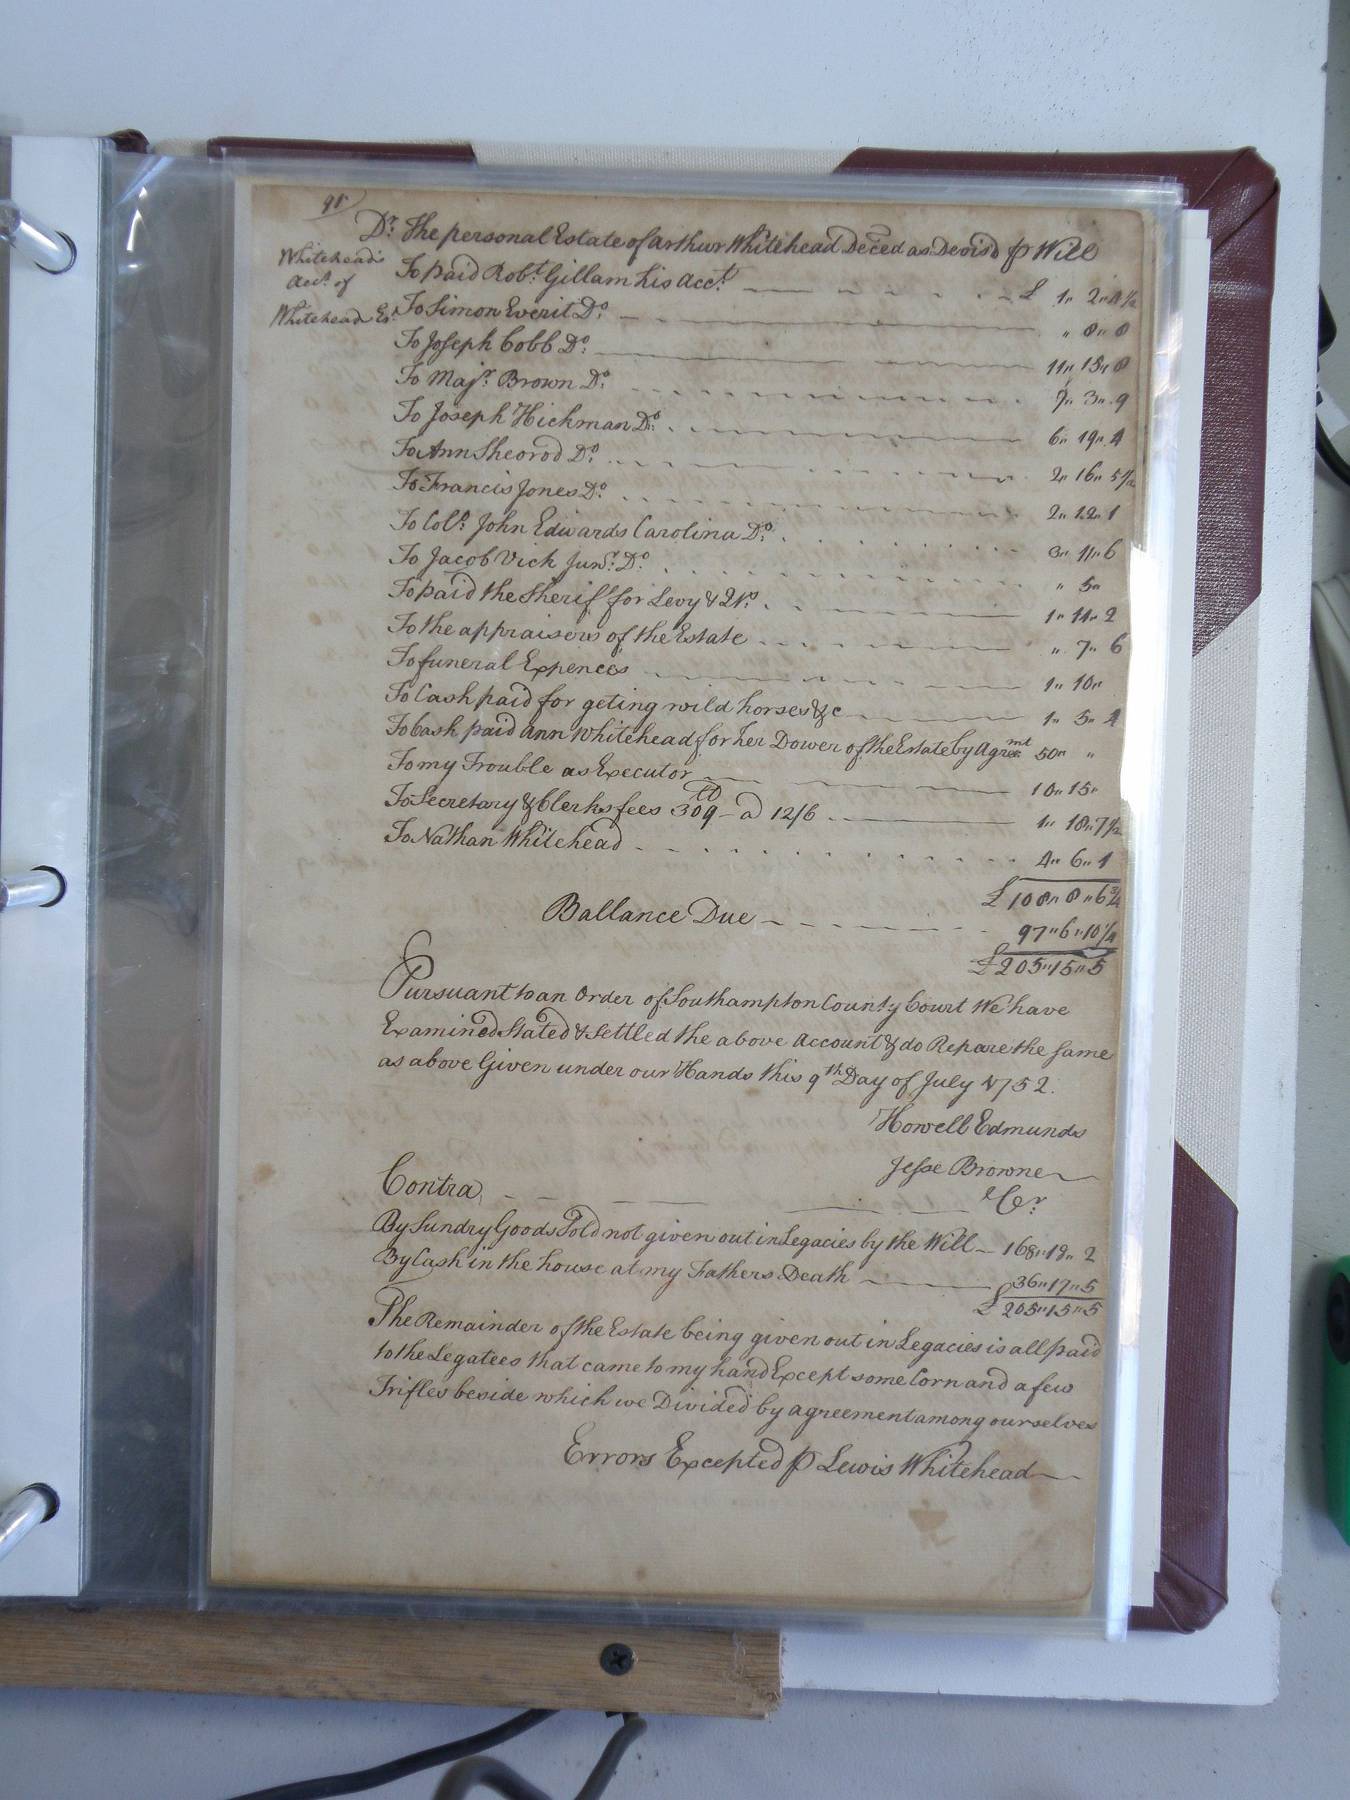 98
Dr. The personal Estate of Arthur Whitehead Deced as Devis'd p Will
Whitehead's
Acct. of
Whitehead Es.
To paid Robt. Gillam his Acct. £ 1" 2" 4 1/2
To Simon Everit Do. " 8" 8
To Joseph Cobb Do. 11" 15" 8
To Majr. Brown Do. 7" 3" 9
To Joseph Hickman Do. 6" 19" 4
To Ann Sheorod Do. 2" 16" 5 1/2
To Francis Jones Do. 2" 12" 1
To Collo. John Edwards Carolina Do. 3" 11" 6
To Jacob Vick Junr. Do. " 5"
To paid the Sherif for Levy & 2ts. 1" 14" 2
To the appraisers of the Estate " 7" 6
To funeral Expences 1" 10"
To Cash paid for geting wild horses &c 1" 5" 4
To Cash paid Ann Whitehead for her Dower of the Estate by Agreemt 50" "
To my Trouble as Executor 10" 15"
To Secretary & Clerks fees 309 lb a 12/6 1" 18" 7 1/2
To Nathan Whitehead 4" 6" 1
£ 108" 8" 6 3/4
Ballance Due 97" 6" 10 1/4
£ 205" 15" 5
Pursuant to an Order of Southampton County Court We have
Examined Stated & Settled the above Account & do Repare the same
as above Given under our Hands this 9th Day of July 1752.
Howell Edmunds
Jesse Browne
Contra Cr.
By Sundry Goods Sold not given out in Legacies by the Will 168" 18" 2
By Cash in the house at my Fathers Death 36" 17" 5
£ 205" 15" 5
The Remainder of the Estate being given out in Legacies is all paid
to the Legatees that came to my hand Except some Corn and a few
Trifles beside which we Divided by agreement among ourselves
Errors Excepted p Lewis Whitehead